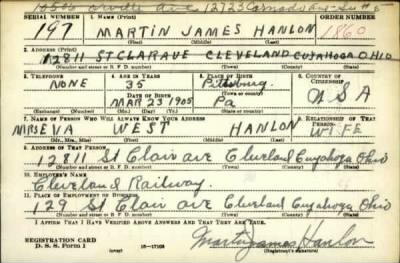 12723
SERIAL NUMBER 1. NAME (Print) ORDER NUMBER
197 MARTIN JAMES HANLON 1860
(First) (Middle) (Last)
2. ADDRESS (Print)
12811 ST CLAR AVE CLEVELAND CUYAHOGA OHIO
(Number and street or R. F. D. number) (Town) (County) (State)
3. TELEPHONE 4. AGE IN YEARS 5. PLACE OF BIRTH 6. COUNTRY OF CITIZENSHIP
NONE 35 Pittsburg
DATE OF BIRTH (Town or county)
MAR 23 1905 Pa USA
(Exchange) (Number) (Mo.) (Day) (Yr.) (State or country)
7. NAME OF PERSON WHO WILL ALWAYS KNOW YOUR ADDRESS 8. RELATIONSHIP OF THAT PERSON
MRS EVA WEST HANLON WIFE
(Mr., Mrs., Miss) (First) (Middle) (Last)
9. ADDRESS OF THAT PERSON
12811 St Clair ave Cleveland Cuyahoga Ohio
(Number and street or R. F. D. number) (Town) (County) (State)
10. EMPLOYER'S NAME
Cleveland Railway.
11. PLACE OF EMPLOYMENT OR BUSINESS
129 St Clair ave Cleveland Cuyahoga Ohio
(Number and street or R. F. D. number) (Town) (County) (State)
I AFFIRM THAT I HAVE VERIFIED ABOVE ANSWERS AND THAT THEY ARE TRUE.
REGISTRATION CARD
D. S. S. Form 1 (over) 16—17105 Martin James Hanlon
(Registrant's signature)